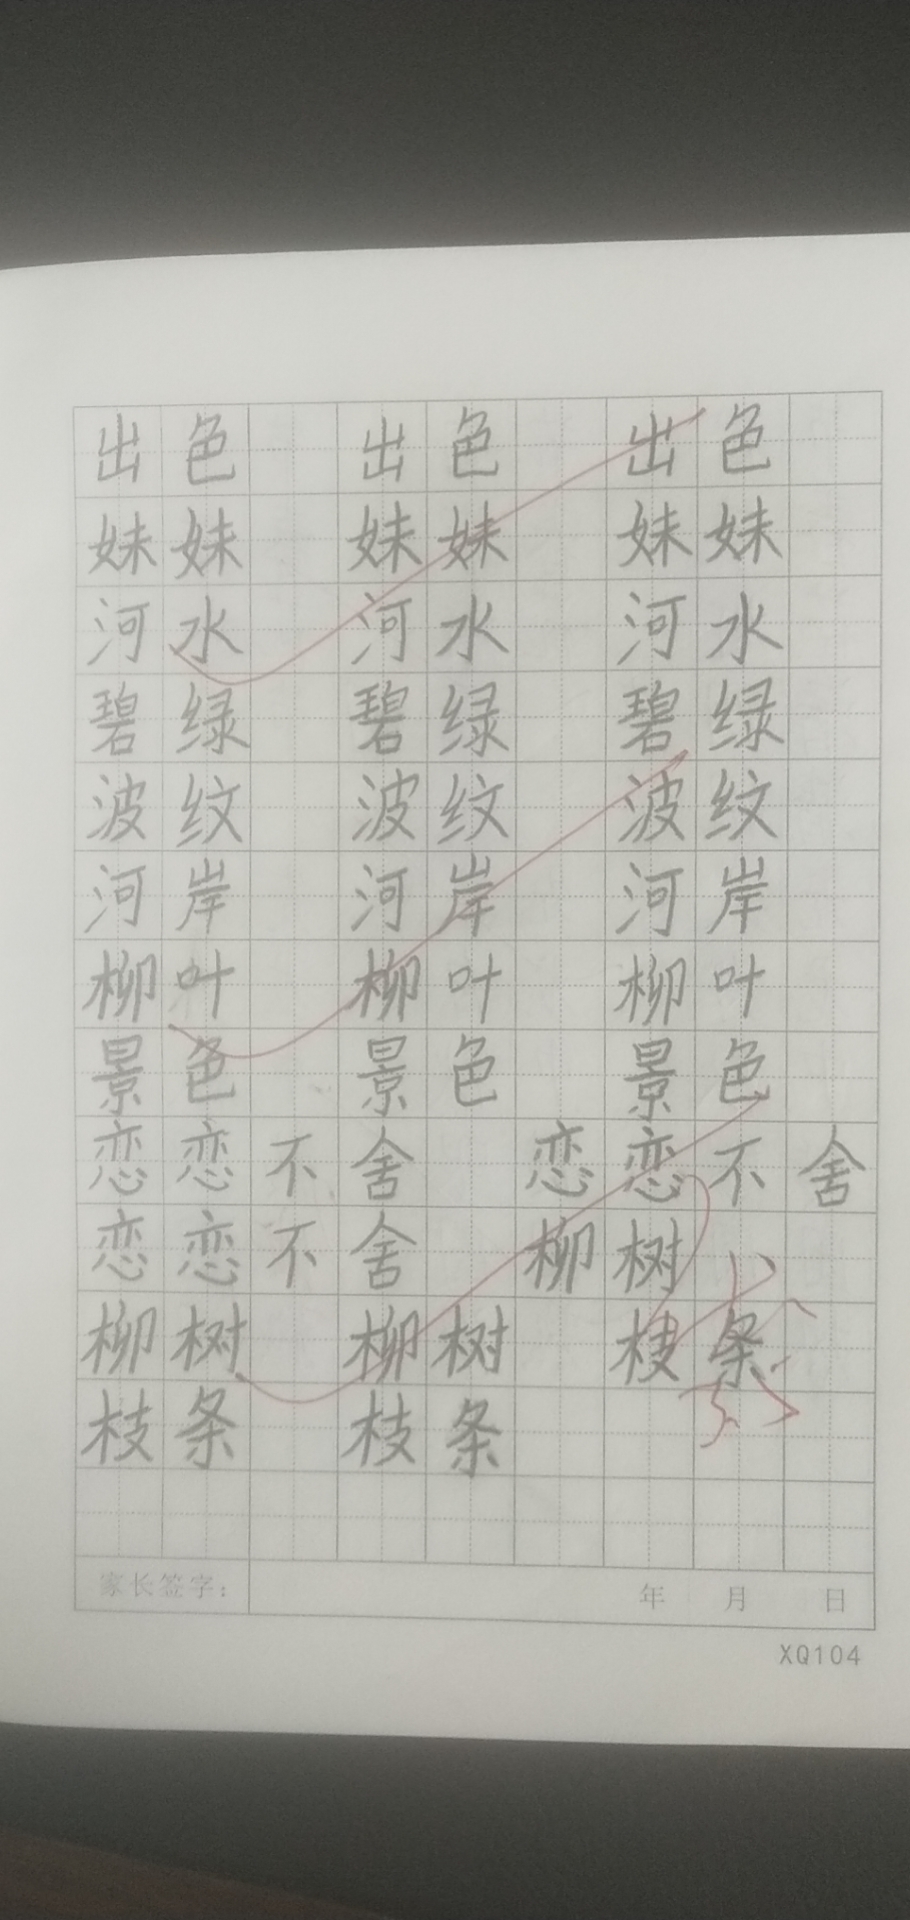 出色 出色 出色
妹妹 妹妹 妹妹
河水 河水 河水
碧绿 碧绿 碧绿
波纹 波纹 波纹
河岸 河岸 河岸
柳叶 柳叶 柳叶
景色 景色 景色
恋恋不舍 恋恋不舍
恋恋不舍 柳树
柳树 柳树 枝条
枝条 枝条
家长签字: 年 月 日
XQ104